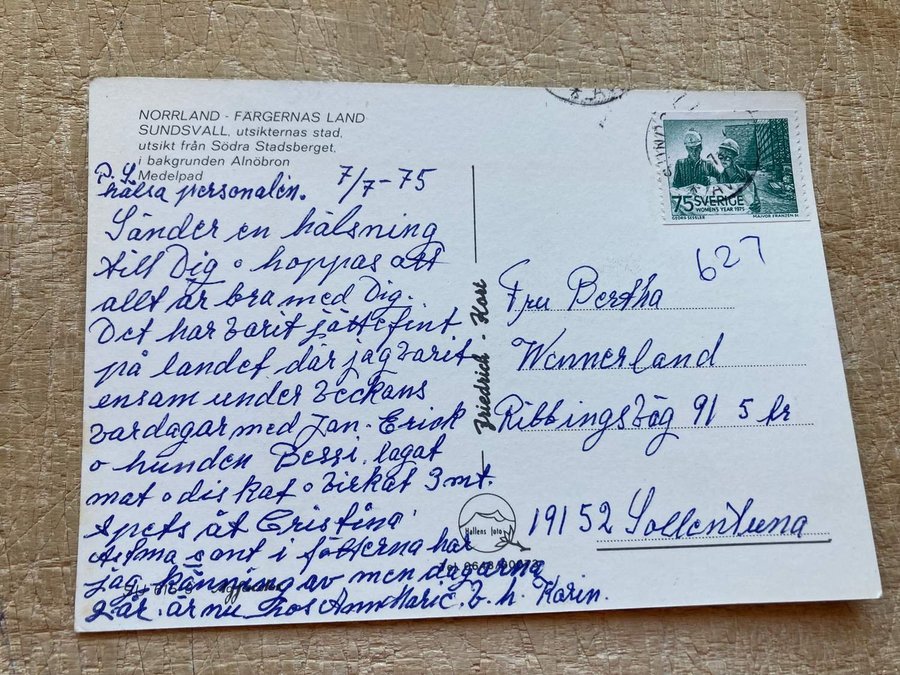 NORRLAND - FÄRGERNAS LAND
SUNDSVALL, utsikternas stad,
utsikt från Södra Stadsberget,
i bakgrunden Alnöbron
Medelpad
P.S.
hälsa personalen. 7/7-75
Sänder en hälsning
till Dig o hoppas att
allt är bra med Dig..
Det har varit jättefint
på landet där jag varit
ensam under veckans
vardagar med Jan-Erick
o hunden Bessi. lagat
mat o diskat o virkat 3 mt.
spets åt Cristina
samt i fötterna har
jag känning av men dagarna
går. är nu hos AnnMarie. v. h. Karin.
Friedrich - Kort
Hallens foto
75 SVERIGE
WOMEN'S YEAR 1975
GEORG SESSLER MAJVOR FRANZÉN SC
627
Fru Bertha
Wennerland
Ribbingsväg 91 5 tr
19152 Sollentuna